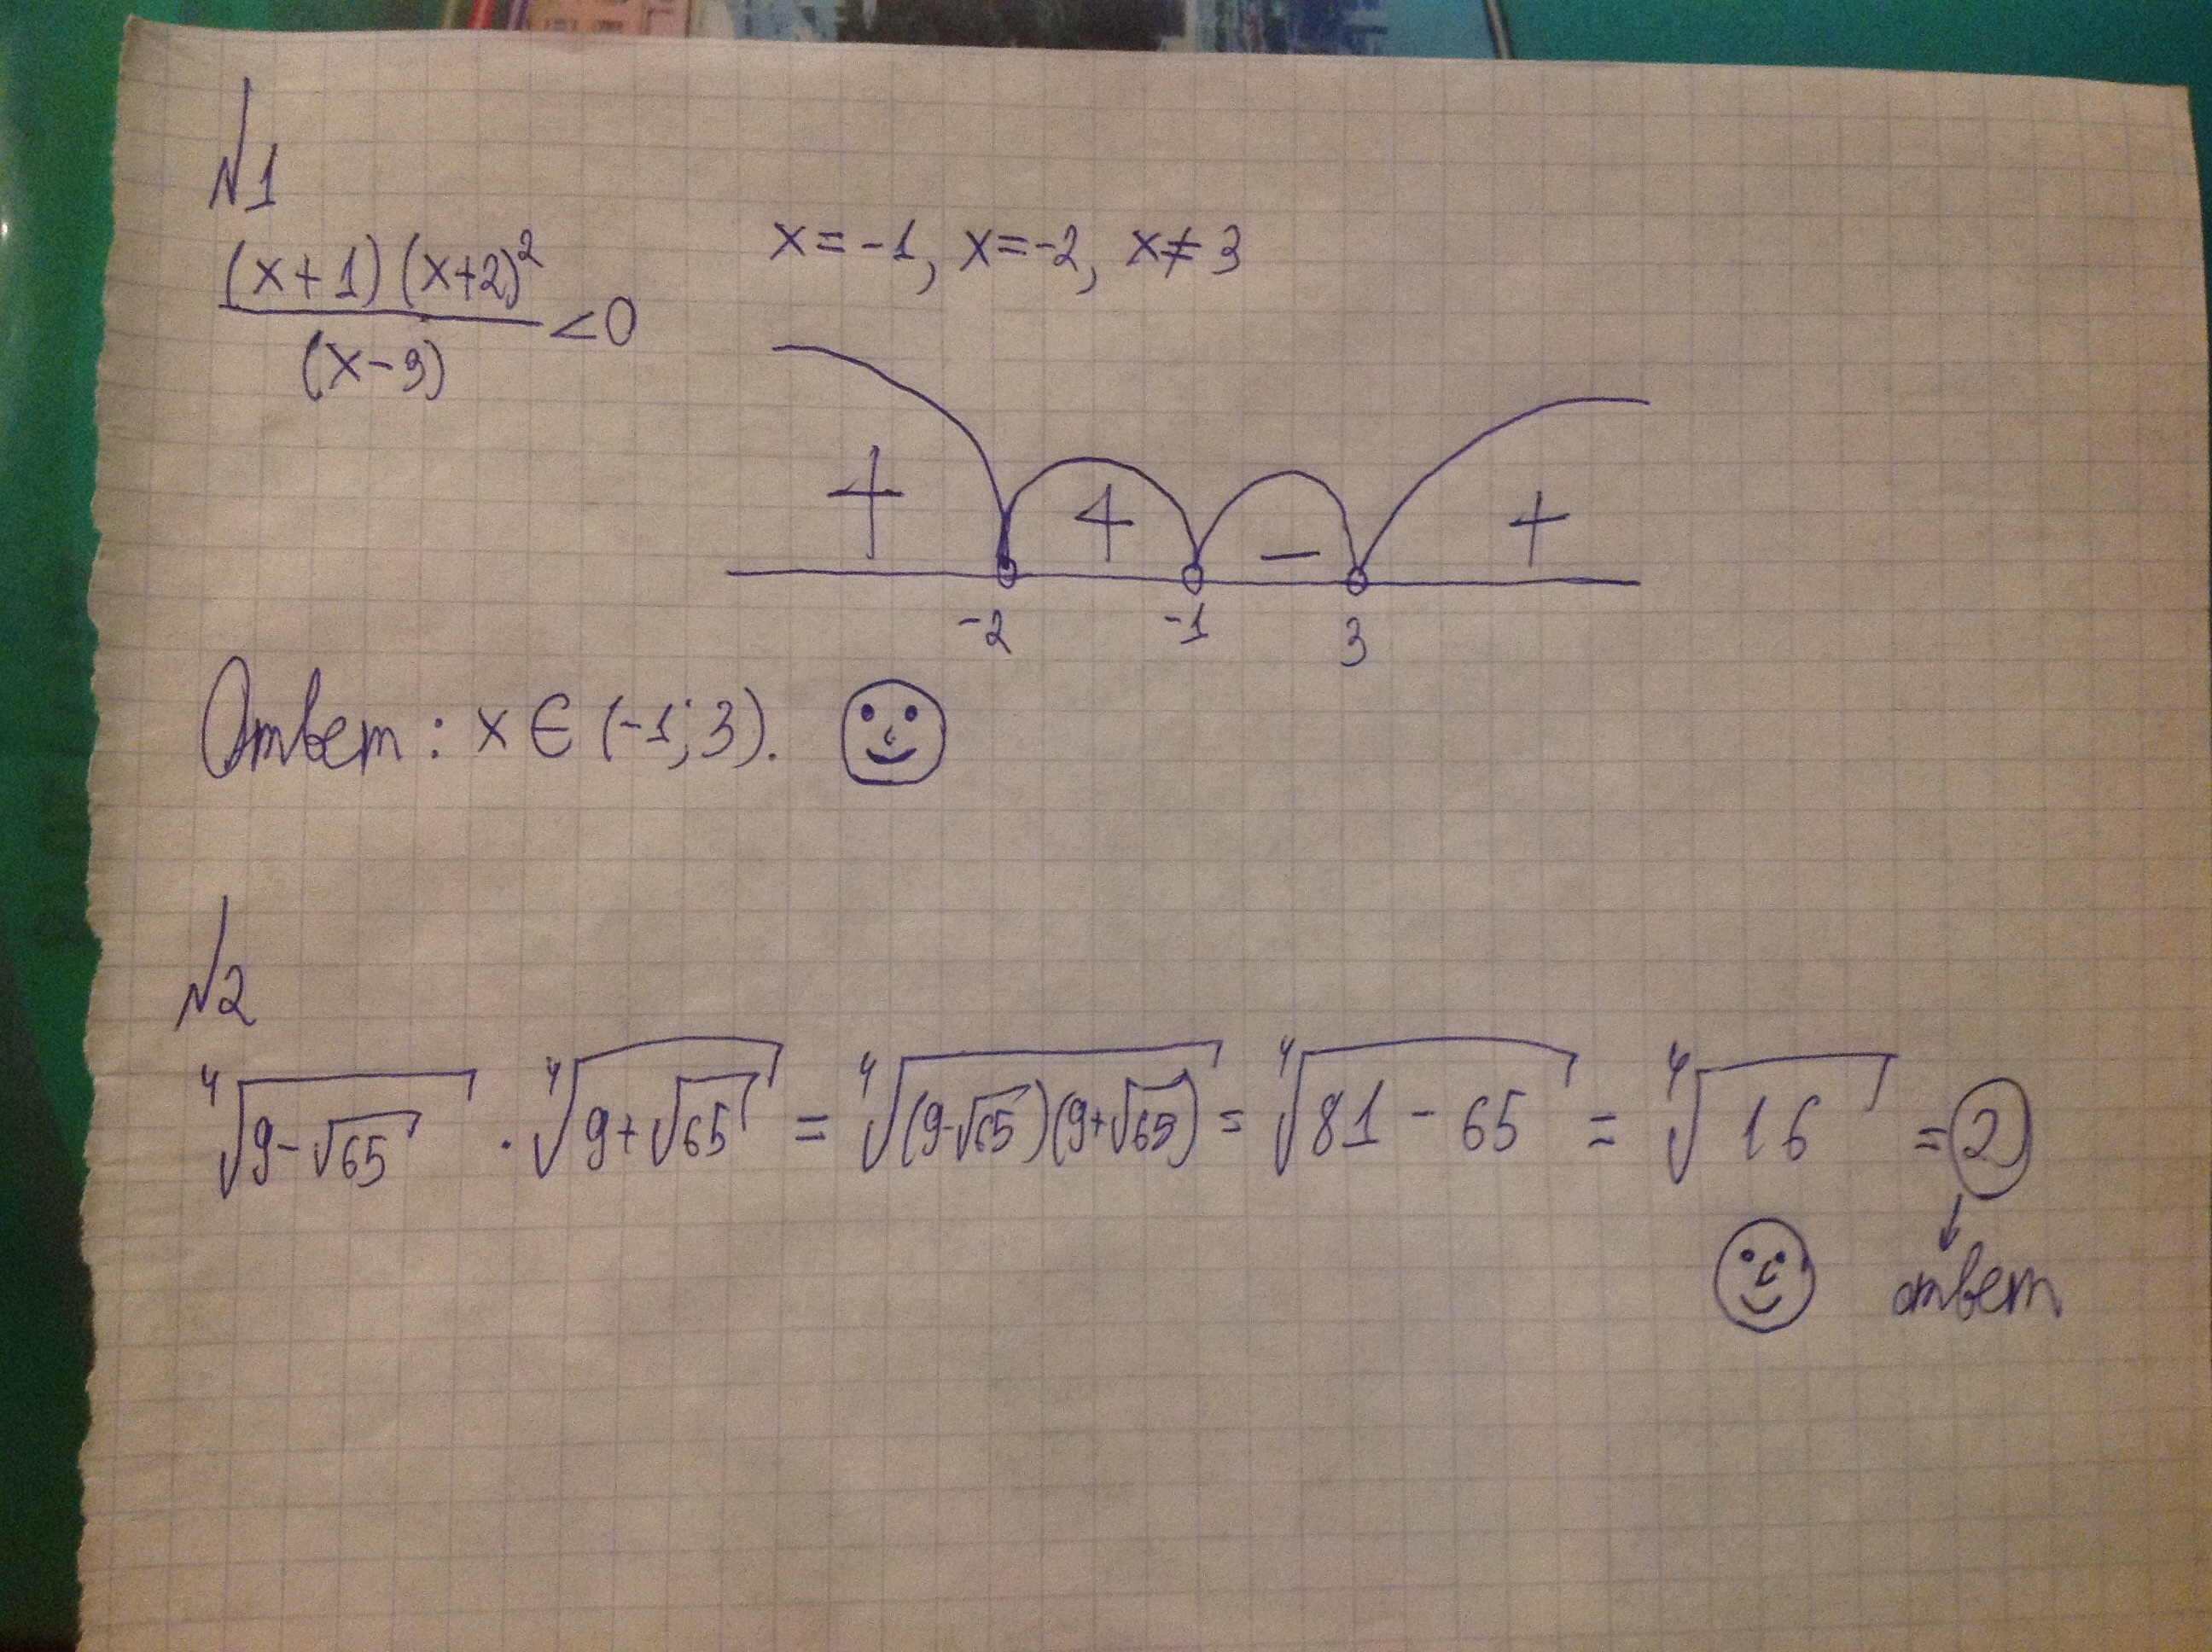 №1
(x+1)(x+2)²/(x-3) <0
x=-1, x=-2, x≠3
+ + - +
-2 -1 3
Ответ: x∈(-1;3).
№2
⁴√(9-√65) · ⁴√(9+√65) = ⁴√((9-√65)(9+√65)) = ⁴√(81-65) = ⁴√16 = 2
ответ